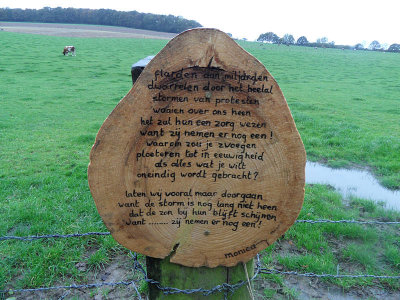 flarden aan miljarden
dwarrelen door het heelal
stormen van protesten
waaien over ons heen
het zal hun een zorg wezen
want zij nemen er nog een!
waarom zou je zwoegen
ploeteren tot in eeuwigheid
als alles wat je wilt
oneindig wordt gebracht?
laten wij vooral maar doorgaan
want de storm is nog lang niet heen
dat de zon bij hun blijft schijnen
want ......... zij nemen er nog een!
monica